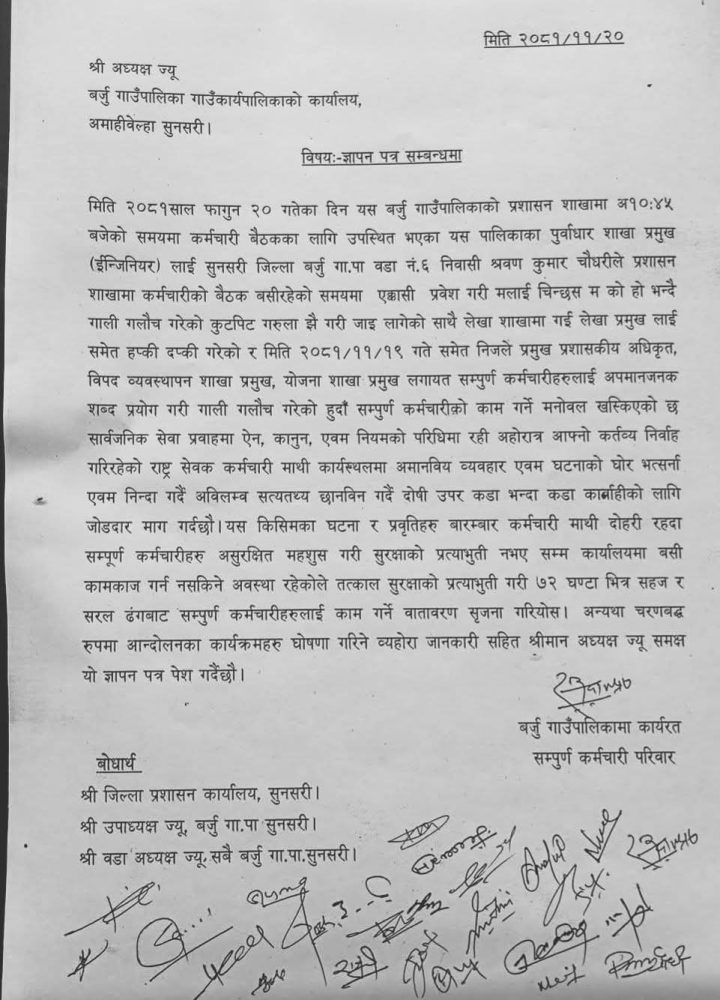 मिति २०८१/११/२०
श्री अध्यक्ष ज्यू
बर्जु गाउँपालिका गाउँकार्यपालिकाको कार्यालय,
अमाहीवेल्हा सुनसरी।
विषयः-ज्ञापन पत्र सम्बन्धमा
मिति २०८१साल फागुन २० गतेका दिन यस बर्जु गाउँपालिकाको प्रशासन शाखामा अ१०:४५
बजेको समयमा कर्मचारी बैठकका लागि उपस्थित भएका यस पालिकाका पुर्वाधार शाखा प्रमुख
(ईन्जिनियर) लाई सुनसरी जिल्ला बर्जु गा.पा वडा नं.६ निवासी श्रवण कुमार चौधरीले प्रशासन
शाखामा कर्मचारीको बैठक बसीरहेको समयमा एक्कासी प्रवेश गरी मलाई चिन्छस म को हो भन्दै
गाली गलौच गरेको कुटपिट गरुला झै गरी जाइ लागेको साथै लेखा शाखामा गई लेखा प्रमुख लाई
समेत हप्की दप्की गरेको र मिति २०८१/११/१९ गते समेत निजले प्रमुख प्रशासकीय अधिकृत,
विपद व्यवस्थापन शाखा प्रमुख, योजना शाखा प्रमुख लगायत सम्पुर्ण कर्मचारीहरुलाई अपमानजनक
शब्द प्रयोग गरी गाली गलौच गरेको हुदाँ सम्पुर्ण कर्मचारीक्रो काम गर्ने मनोवल खस्किएको छ
सार्वजनिक सेवा प्रवाहमा ऐन, कानुन, एवम नियमको परिधिमा रही अहोरात्र आफ्नो कर्तव्य निर्वाह
गरिरहेको राष्ट्र सेवक कर्मचारी माथी कार्यस्थलमा अमानविय व्यवहार एवम घटनाको घोर भत्सर्ना
एवम निन्दा गर्दै अविलम्ब सत्यतथ्य छानविन गर्दै दोषी उपर कडा भन्दा कडा कार्वाहीको लागि
जोडदार माग गर्दछौ।यस किसिमका घटना र प्रवृतिहरु बारम्बार कर्मचारी माथी दोहरी रहदा
सम्पूर्ण कर्मचारीहरु असुरक्षित महशुस गरी सुरक्षाको प्रत्याभुती नभए सम्म कार्यालयमा बसी
कामकाज गर्न नसकिने अवस्था रहेकोले तत्काल सुरक्षाको प्रत्याभुती गरी ७२ घण्टा भित्र सहज र
सरल ढंगबाट सम्पुर्ण कर्मचारीहरुलाई काम गर्ने वातावरण सृजना गरियोस। अन्यथा चरणवद्ध
रुपमा आन्दोलनका कार्यक्रमहरु घोषणा गरिने व्यहोरा जानकारी सहित श्रीमान अध्यक्ष ज्यू समक्ष
यो ज्ञापन पत्र पेश गर्दैछौ।
बर्जु गाउँपालिकामा कार्यरत
सम्पुर्ण कर्मचारी परिवार
बोधार्थ
श्री जिल्ला प्रशासन कार्यालय, सुनसरी।
श्री उपाध्यक्ष ज्यू, बर्जु गा.पा सुनसरी।
श्री वडा अध्यक्ष ज्यू, सबै बर्जु गा.पा.सुनसरी।